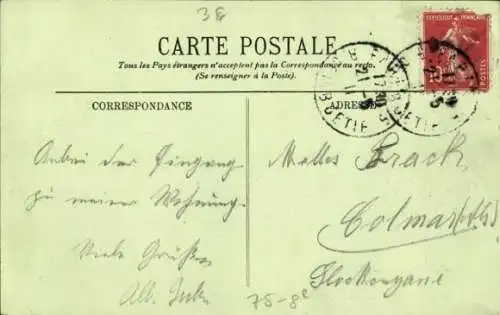 38
CARTE POSTALE
Tous les Pays étrangers n'acceptent pas la Correspondance au recto.
(Se renseigner à la Poste).
CORRESPONDANCE
ADRESSE
REPUBLIQUE FRANÇAISE
POSTES
PARIS
BOETIE
Anbei der Eingang
zu meiner Wohnung.
Viele Grüße
Alb.
Melles
Colmar
75-8e